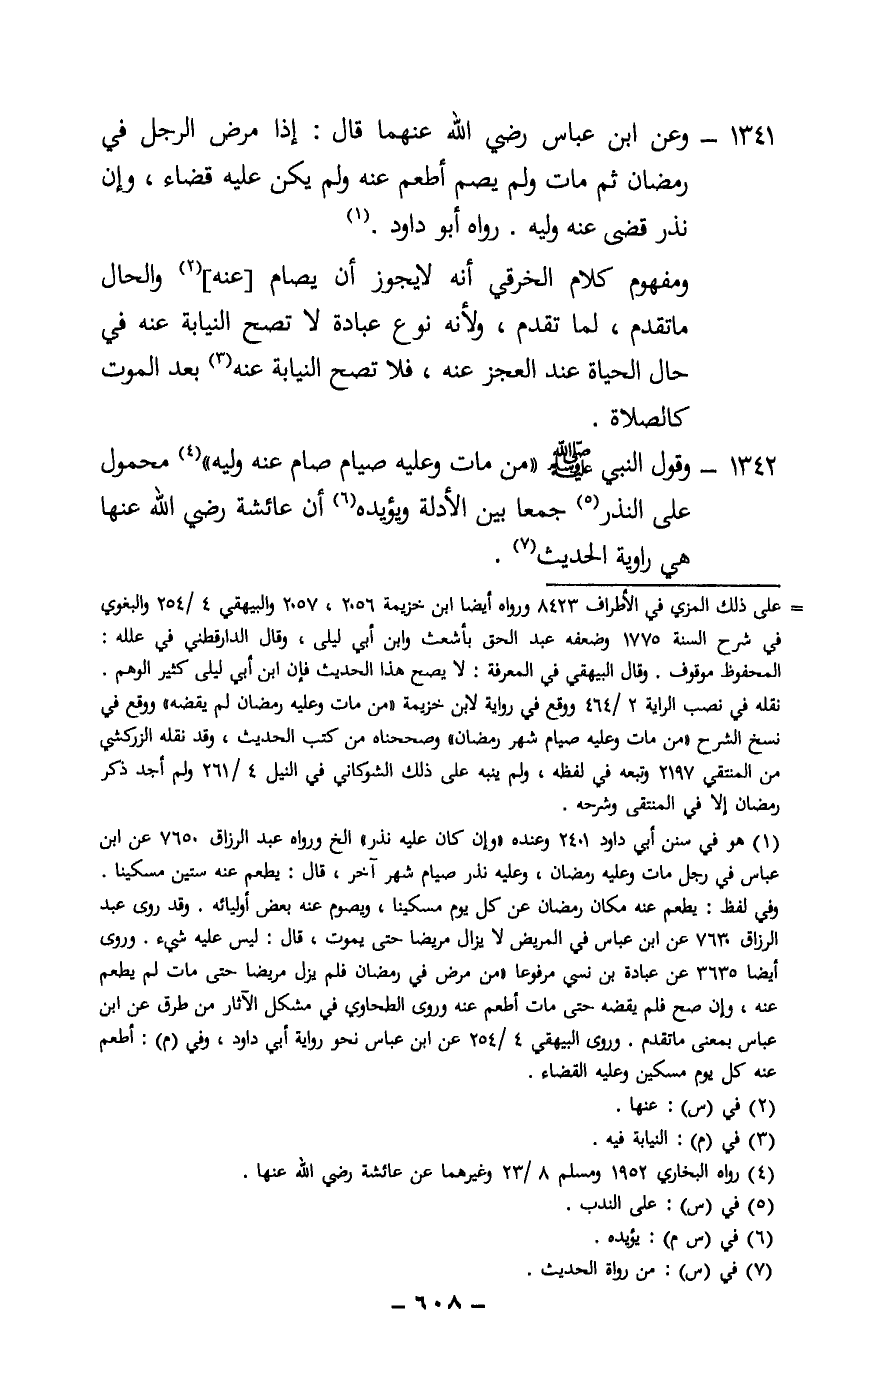 ١٣٤١ ــ وعن ابن عباس رضي الله عنهما قال : إذا مرض الرجل في
رمضان ثم مات ولم يصم أطعم عنه ولم يكن عليه قضاء ، وإن
نذر قضى عنه وليه . رواه أبو داود .(١)
ومفهوم كلام الخرقي أنه لايجوز أن يصام [عنه](٢) والحال
ماتقدم ، لما تقدم ، ولأنه نوع عبادة لا تصح النيابة عنه في
حال الحياة عند العجز عنه ، فلا تصح النيابة عنه(٣) بعد الموت
كالصلاة .
١٣٤٢ ــ وقول النبي ﷺ «من مات وعليه صيام صام عنه وليه»(٤) محمول
على النذر(٥) جمعا بين الأدلة ويؤيده(٦) أن عائشة رضي الله عنها
هي راوية الحديث(٧) .
= على ذلك المزي في الأطراف ٨٤٢٣ ورواه أيضا ابن خزيمة ٢٠٥٦ ، ٢٠٥٧ والبيهقي ٤ /٢٥٤ والبغوي
في شرح السنة ١٧٧٥ وضعفه عبد الحق بأشعث وابن أبي ليلى ، وقال الدارقطني في علله :
المحفوظ موقوف . وقال البيهقي في المعرفة : لا يصح هذا الحديث فإن ابن أبي ليلى كثير الوهم .
نقله في نصب الراية ٢ /٤٦٤ ووقع في رواية لابن خزيمة «من مات وعليه رمضان لم يقضه» ووقع في
نسخ الشرح «من مات وعليه صيام شهر رمضان» وصححناه من كتب الحديث ، وقد نقله الزركشي
من المنتقي ٢١٩٧ وتبعه في لفظه ، ولم ينبه على ذلك الشوكاني في النيل ٤ /٢٦١ ولم أجد ذكر
رمضان إلا في المنتقى وشرحه .
(١) هو في سنن أبي داود ٢٤٠١ وعنده «وإن كان عليه نذر» الخ ورواه عبد الرزاق ٧٦٥٠ عن ابن
عباس في رجل مات وعليه رمضان ، وعليه نذر صيام شهر آخر ، قال : يطعم عنه ستين مسكينا .
وفي لفظ : يطعم عنه مكان رمضان عن كل يوم مسكينا ، ويصوم عنه بعض أوليائه . وقد روى عبد
الرزاق ٧٦٣٠ عن ابن عباس في المريض لا يزال مريضا حتى يموت ، قال : ليس عليه شيء . وروى
أيضا ٣٦٣٥ عن عبادة بن نسي مرفوعا «من مرض في رمضان فلم يزل مريضا حتى مات لم يطعم
عنه ، وإن صح فلم يقضه حتى مات أطعم عنه وروى الطحاوي في مشكل الآثار من طرق عن ابن
عباس بمعنى ماتقدم . وروى البيهقي ٤ /٢٥٤ عن ابن عباس نحو رواية أبي داود ، وفي (م) : أطعم
عنه كل يوم مسكين وعليه القضاء .
(٢) في (س) : عنها .
(٣) في (م) : النيابة فيه .
(٤) رواه البخاري ١٩٥٢ ومسلم ٨ /٢٣ وغيرهما عن عائشة رضي الله عنها .
(٥) في (س) : على الندب .
(٦) في (س م) : يؤيده .
(٧) في (س) : من رواة الحديث .
ــ ٦٠٨ ــ